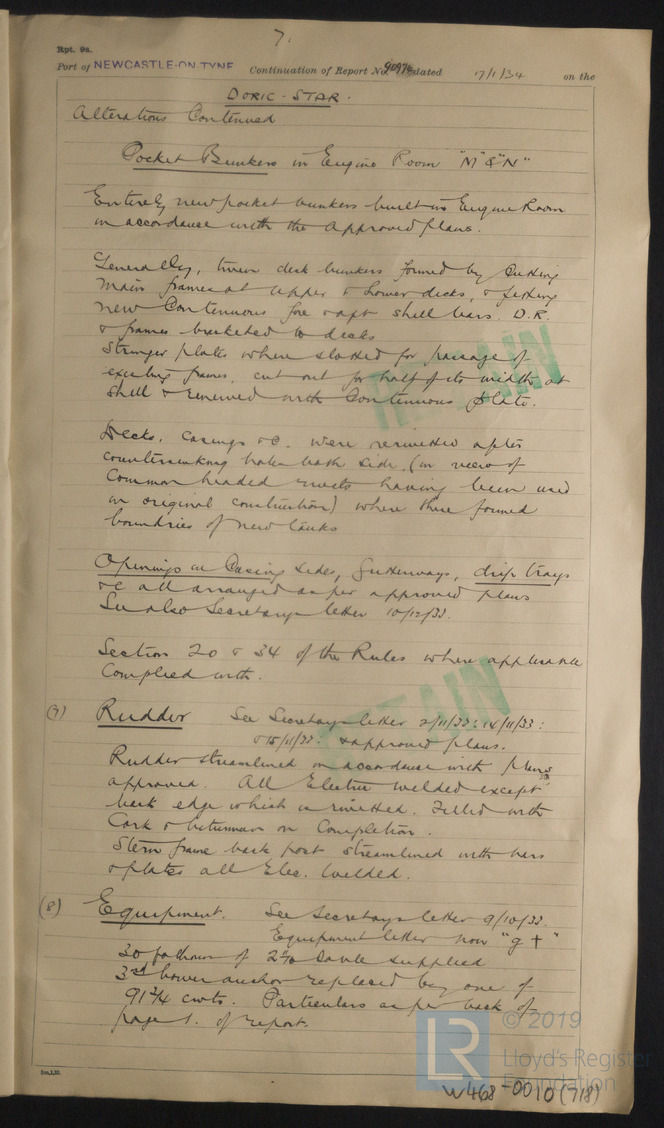 7.
Rpt. 9a.
Port of NEWCASTLE-ON-TYNE Continuation of Report No. 90976 dated 17/1/34 on the
DORIC-STAR.
Alterations Continued
Pocket Bunkers in Engine Room "M" & "N"
Entirely new pocket bunkers built in Engine Room
in accordance with the approved plans.
Generally, tween deck bunkers formed by cutting
main frames at upper & lower decks, & fitting
new Continuous fore & aft shell bars. D.R.
& frames bracketed to decks
Stringer plates where slotted for passage of
existing frames, cut out for half of its width at
shell & renewed with Continuous plate.
RETAIN
Decks, casings &c. were rerivetted after
countersinking holes both side (in view of
Common headed rivets having been used
in original construction) where these formed
boundries of new tanks
Openings in Casing sides, gutterways, drip trays
&c all arranged as per approved plans
See also Secretarys letter 10/12/33.
Section 20 & 34 of the Rules where applicable
Complied with.
RETAIN
(7) Rudder See Secretarys letter 2/11/33: 14/11/33:
& 15/11/33. & approved plans.
Rudder streamlined in accordance with plans
approved. All Electric welded except
back edge which is rivetted. Filled with
Cork & bitumen on Completion.
Stern frame back post streamlined with bars
& plates all Elec. Welded.
(8) Equipment. See Secretarys letter 9/10/33.
Equipment letter now "g †"
30 fathoms of cable supplied
3rd bower anchor replaced by one of
91 3/4 cwts. Particulars as per back of
page 1. of report.
© 2019
LR
Lloyd's Register
Foundation
W468-0010 (7/8)